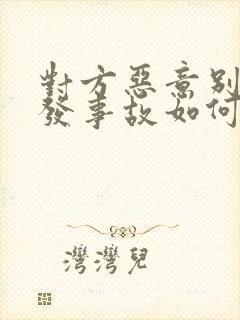 對方惡意別
發事故如何
灣灣兒